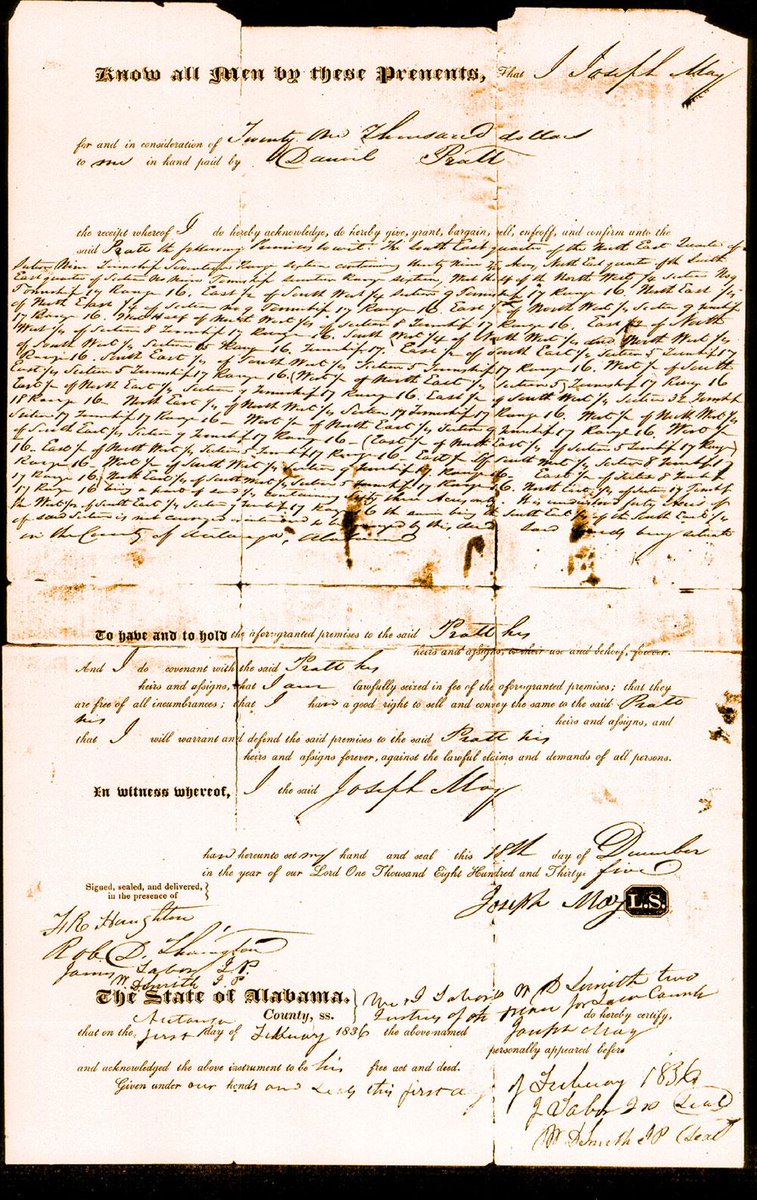 Know all Men by these Presents, That I Joseph May
for and in consideration of Twenty One Thousand dollars
to me in hand paid by Daniel Pratt
the receipt whereof I do hereby acknowledge, do hereby give, grant, bargain, sell, enfeoff, and confirm unto the
said Pratt the following Premises to wit: The South East quarter of the North East Quarter of
Section Nine Township Seventeen Range Sixteen containing thirty Nine Acres North East quarter of the South
East quarter of Section Township Seventeen Range Sixteen, West of North West 1/4 Section
Township 17 Range 16. East 1/2 of South West 1/4 Section 9 Township 17 Range 16. North East 1/4
of North East 1/4 of Section Township 17 Range 16. East 1/2 of North West 1/4 Section 9 Township
17 Range 16. West Half of North West 1/4 of Section 8 Township 17 Range 16. East 1/2 of North
West 1/4 of Section 8 Township 17 Range 16. South West 1/4 of North West 1/4 and North West 1/4
of South West 1/4 Section Range 16 Township 17. East 1/2 of South East 1/4 Section 5 Township 17
Range 16. South East 1/4 of South West 1/4 Section 5 Township 17 Range 16. West 1/2 of South
East 1/4 Section 5 Township 17 Range 16. West 1/2 of North East 1/4 Section 5 Township 17 Range 16
East 1/2 of North East 1/4 Section Township 17 Range 16. East 1/2 of South West 1/4 Section 32 Township
18 Range 16 - North East 1/4 of North West 1/4 Section 17 Township 17 Range 16. West 1/2 of North West 1/4
Section 17 Township 17 Range 16 - West 1/2 of North East 1/4 Section 9 Township 17 Range 16. West 1/2
of South East 1/4 Section 9 Township 17 Range 16 - East 1/2 of North East 1/4 of Section 5 Township 17 Range
16 - East 1/2 of North West 1/4 Section 5 Township 17 Range 16. East 1/2 of South West 1/4 Section 8 Township 17
Range 16 - West 1/2 of South West 1/4 Section 9 Township 17 Range 16 - East 1/2 of Section 8 Township
17 Range 16 North East 1/4 of South West 1/4 Section 5 Township 17 Range 16. North East 1/4 of Section 17 Township
17 Range 16 being a part of said 1/4 containing Acres
the West 1/2 of South East 1/4 Section 9 Township 17 Range 16 the same being the South East 1/4 of the South East 1/4
of said Section is not conveyed to be conveyed by this deed said lands being situate
in the County of Autauga, Alabama
To have and to hold the aforegranted premises to the said Pratt his
heirs and assigns, to their use and behoof, forever.
And I do covenant with the said Pratt his
heirs and assigns, that I am lawfully seized in fee of the aforegranted premises; that they
are free of all incumbrances; that I have a good right to sell and convey the same to the said Pratt
his heirs and assigns, and
that I will warrant and defend the said premises to the said Pratt his
heirs and assigns forever, against the lawful claims and demands of all persons.
In witness whereof, I the said Joseph May
have hereunto set my hand and seal this 18th day of December
in the year of our Lord One Thousand Eight Hundred and Thirty five
Signed, sealed, and delivered,
in the presence of
Joseph May L.S.
Haughton
Rob. D. Thorington
James Tabor J P
W. D Smith J P
The State of Alabama. We J Tabor & W D Smith two
Autauga County, ss. Justices of the peace for said County do hereby certify,
that on the first day of February 1836 the above-named Joseph May
personally appeared before
and acknowledged the above instrument to be his free act and deed.
Given under our hands and seals this first day of February 1836
J Tabor J P (Seal)
W D Smith J P (Seal)